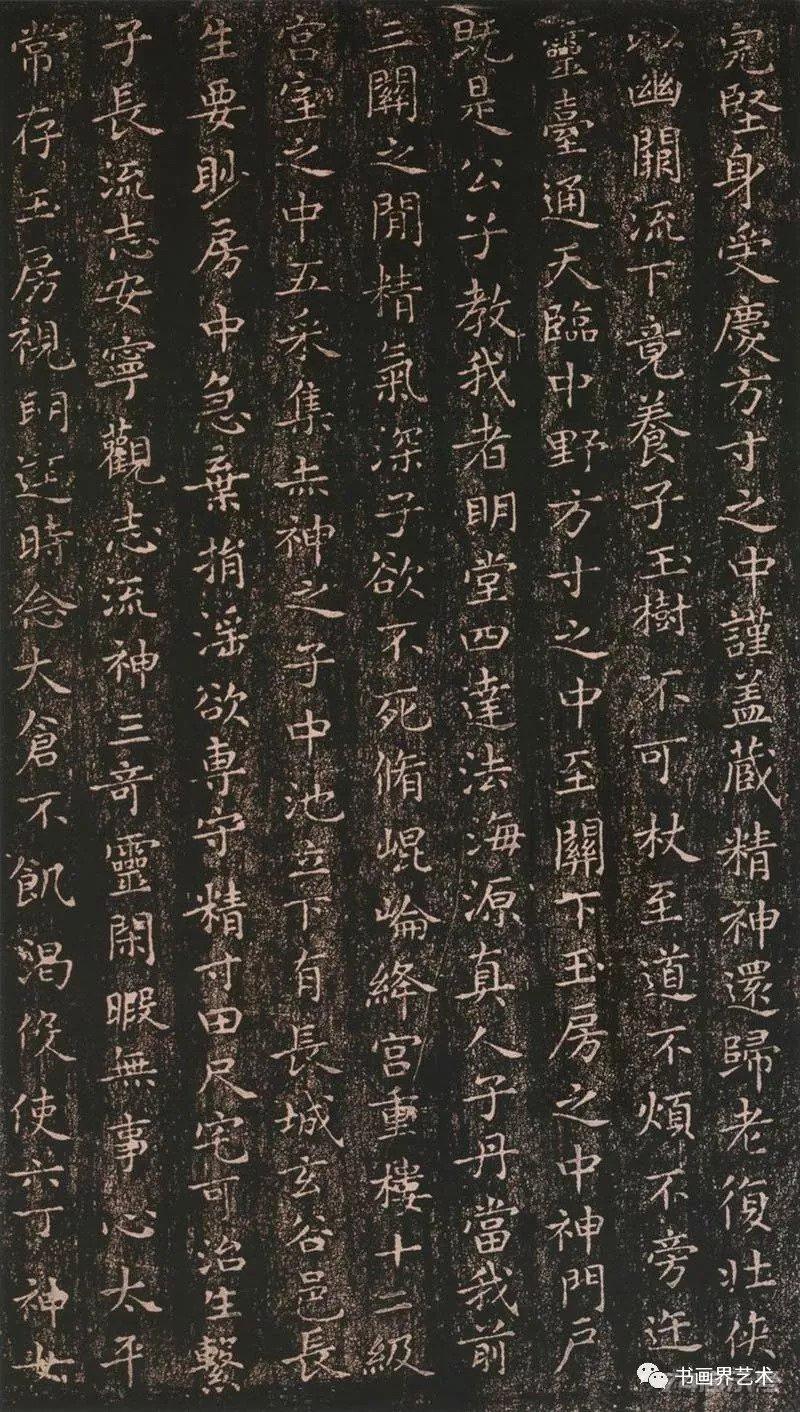 完堅身受慶方寸之中謹盖藏精神還歸老復壯俠
以幽闕流下竟養子玉樹不可杖至道不煩不旁迕
靈臺通天臨中野方寸之中至關下玉房之中神門戶
既是公子教我者明堂四達法海源真人子丹當我前
三關之間精氣深子欲不死脩崐崘絳宮重樓十二級
宮室之中五采集赤神之子中池立下有長城玄谷邑長
生要眇房中急棄捐滛欲専守精寸田尺宅可治生繫
子長流志安寧觀志流神三奇靈閑暇無事心太平
常存玉房視明達時念大倉不飢渴伇使六丁神女
书画界艺术